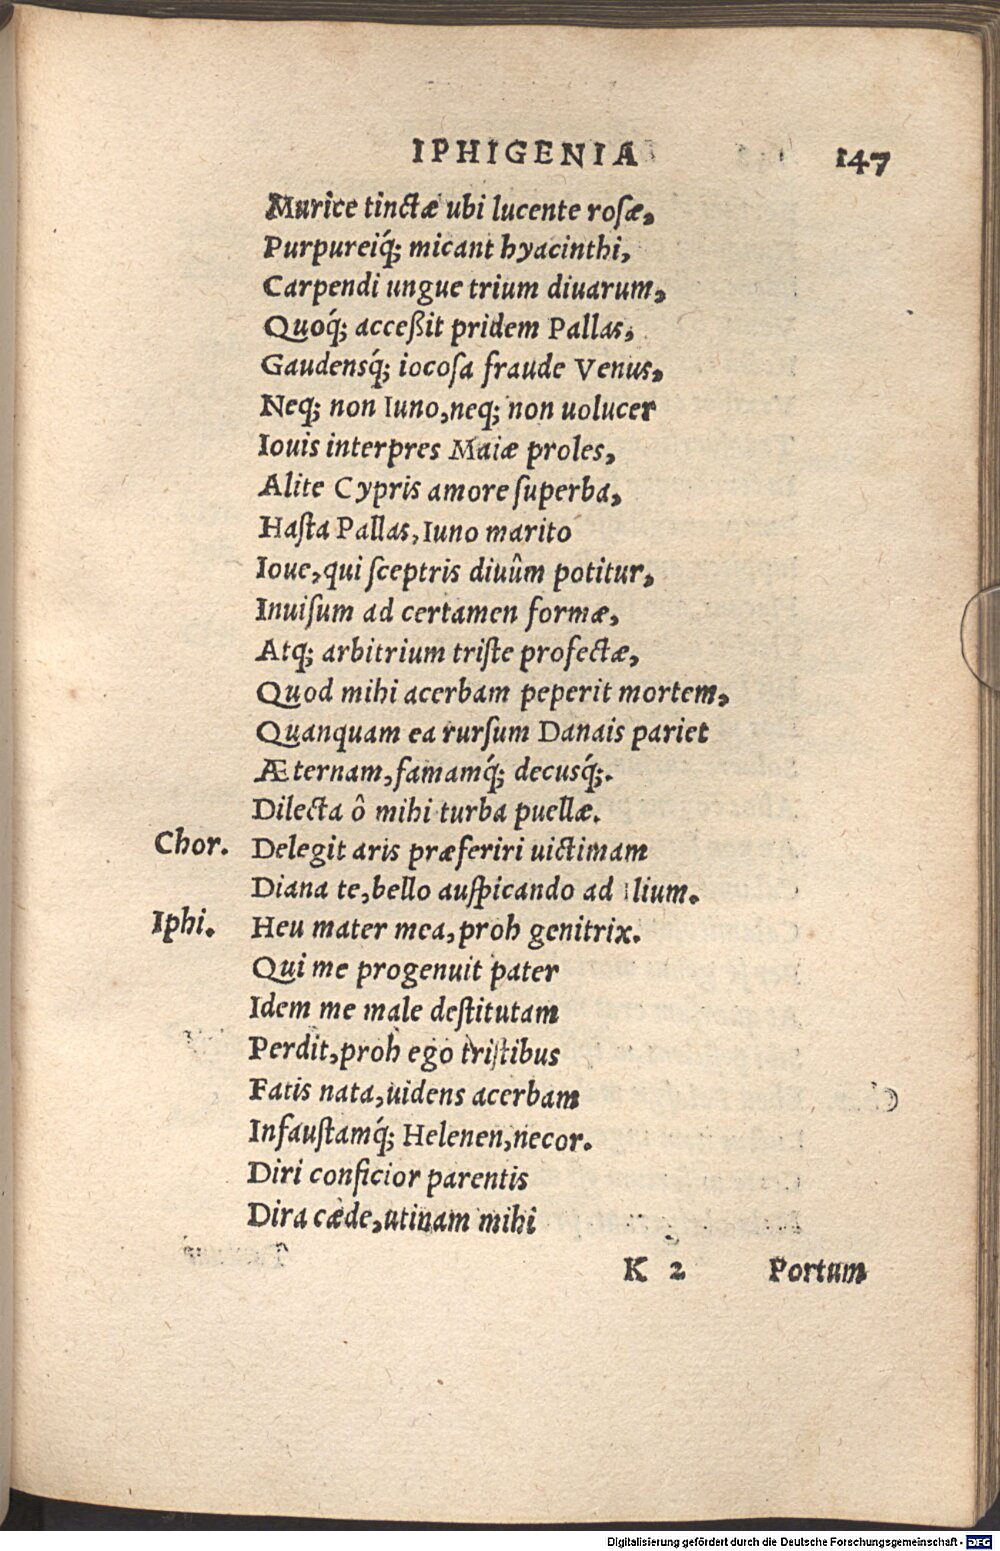 IPHIGENIA 147
Murice tinctæ ubi lucente roſæ,
Purpureiq́; micant hyacinthi,
Carpendi ungue trium diuarum,
Quoq́; acceßit pridem Pallas,
Gaudensq́; iocoſa fraude Venus,
Neq; non Iuno, neq; non uolucer
Iouis interpres Maiæ proles,
Alite Cypris amore ſuperba,
Haſta Pallas, Iuno marito
Ioue, qui ſceptris diuûm potitur,
Inuiſum ad certamen formæ,
Atq; arbitrium triſte profectæ,
Quod mihi acerbam peperit mortem,
Quanquam ea rurſum Danais pariet
Æternam, famamq́; decusq́;.
Dilecta ô mihi turba puellæ.
Chor. Delegit aris præferiri uictimam
Diana te, bello auſpicando ad Ilium.
Iphi. Heu mater mea, proh genitrix.
Qui me progenuit pater
Idem me male deſtitutam
Perdit, proh ego triſtibus
Fatis nata, uidens acerbam
Infauſtamq́; Helenen, necor.
Diri conficior parentis
Dira cæde, utinam mihi
K 2 Portum
Digitalisierung gefördert durch die Deutsche Forschungsgemeinschaft - DFG